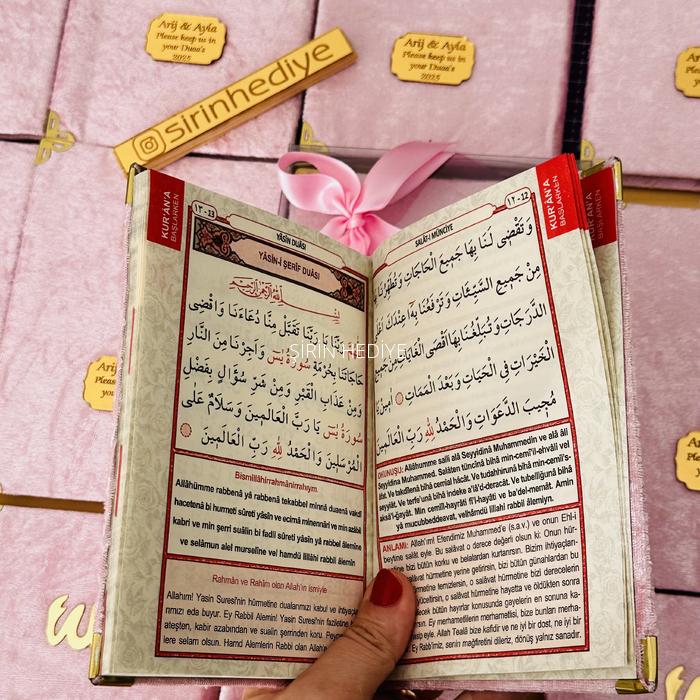 Arij & Ayla
Please keep us in
your Duaa's
2025
sirinhediye
Arij & Ayla
Please keep us in
your Duaa's
2025
KUR'ÂN'A
BAŞLARKEN
١٣ - 13
YÂSÎN DUÂSI
YÂSÎN-İ ŞERÎF DUÂSI
بِسْمِ اللهِ الرَّحْمٰنِ الرَّحِيمِ
رَبَّنَا يَا رَبَّنَا تَقَبَّلْ مِنَّا دُعَاءَنَا وَاقْضِى
حَاجَاتَنَا بِحُرْمَةِ سُورَةُ يٰسٓ وَاَجِرْنَا مِنَ النَّارِ
وَمِنْ عَذَابِ الْقَبْرِ وَمِنْ شَرِّ سُؤَالٍ بِفَضْلِ
سُورَةُ يٰسٓ يَا رَبَّ الْعَالَمِينَ وَسَلَامٌ عَلَى
الْمُرْسَلِينَ وَالْحَمْدُ لِلّٰهِ رَبِّ الْعَالَمِينَ
Bismillâhirrahmânirrahıym
Allâhümme rabbenâ yâ rabbenâ tekabbel minnâ duaenâ vakdî
hacetenâ bi hurmeti sûreti yâsîn ve ecirnâ minennâri ve min azâbil
kabri ve min şerri suâlin bi fadli sûreti yâsîn yâ rabbel âlemine
ve selâmun alel murselîne vel hamdü lillâhi rabbil âlemin
Rahmân ve Rahîm olan Allah'ın ismiyle
Allahım! Yasin Suresi'nin hürmetine dualarımızı kabul ve ihtiyaç
rımızı eda buyur. Ey Rabbil Alemin! Yasin Suresi'nin faziletine
ateşten, kabir azabından ve sualin şerrinden koru. Pey
lere selam olsun. Hamd Alemlerin Rabbi olan Allah'a
SALÂT-I MÜNCİYE
١٢ - 12
KUR'ÂN'A
BAŞLARKEN
KUR'ÂN'A
BAŞLARKEN
وَتَقْضِى لَنَا بِهَا جَمِيعَ الْحَاجَاتِ وَتُطَهِّرُنَا بِهَا
مِنْ جَمِيعِ السَّيِّئَاتِ وَتَرْفَعُنَا بِهَا عِنْدَكَ
الدَّرَجَاتِ وَتُبَلِّغُنَا بِهَا اَقْصَى الْغَايَاتِ مِنْ جَمِيعِ
الْخَيْرَاتِ فِى الْحَيَاتِ وَبَعْدَ الْمَمَاتِ اٰمِينَ
مُجِيبَ الدَّعَوَاتِ وَالْحَمْدُ لِلّٰهِ رَبِّ الْعَالَمِينَ
ŞİRİN HEDİYE
OKUNUŞU: Allâhumme salli alâ Seyyidinâ Muhammedin ve alâ âli
Seyyidinâ Muhammed. Salâten tüncînâ bihâ min-cemî'il-ehvâli vel
âfat. Ve takdîlenâ bihâ cemîal hâcât. Ve tudahhirunâ bihâ min-cemîi's-
seyyiât. Ve terfe'unâ bihâ indeke a'lâ'd-deracât. Ve tubelliğunâ bihâ
aksâ'l-ğayât. Min cemîil-hayrâti fî'l-hayâti ve ba'del-memât. Âmin
yâ mucubeddeavat, velhâmdü lillahi rabbil âlemiyn.
ANLAMI: Allah'ım! Efendimiz Muhammed'e (s.a.v.) ve onun Ehl-i
beytine salât eyle. Bu salâvat o derece değerli olsun ki: Onun hür-
metine bizi bütün korku ve belalardan kurtarırsın. Bizim ihtiyaçları-
hürmetine yerine getirirsin, bizi bütün günahlardan bu
hürmetine temizlersin, o salâvat hürmetine bizi derecelerin
yüceltirsin, o salâvat hürmetine hayatta ve öldükten sonra
bütün hayırlar konusunda gayelerin en sonuna ka-
Ey merhametlilerin merhametlisi, bize bunları merha-
eyle. Allah Tealâ bize kafidir ve ne iyi bir dost, ne iyi bir
Ey Rabbi'miz, senin mağfiretini dileriz, dönüş yalnız sanadır.